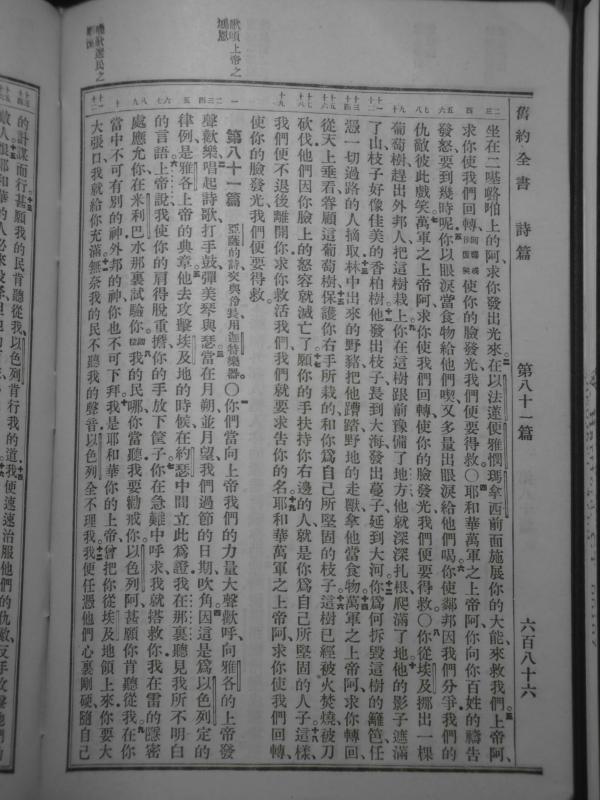 舊約全書　詩篇　第八十一篇　六百八十六
坐在二𠼻㗔啪上的阿求你發出光來在以法蓮便雅憫瑪拿西前面施展你的大能來救我們上帝阿
求你使我們回轉使你的臉發光我們便要得救〇耶和華萬軍之上帝阿你向你百姓的禱告
發怒要到幾時呢你以眼淚當食物給他們喫又多量出眼淚給他們喝你使鄰邦因我們分爭我們的
仇敵彼此戲笑萬軍之上帝阿求你使我們回轉使你的臉發光我們便要得救〇你從埃及挪出一棵
葡萄樹趕出外邦人把這樹栽上你在這樹跟前豫備了地方他就深深扎根爬滿了地他的影子遮滿
了山枝子好像佳美的香柏樹他發出枝子長到大海發出蔓子延到大河你爲何拆毀這樹的籬笆任
憑一切過路的人摘取林中出來的野豬把他蹧踏野地的走獸拿他當食物萬軍之上帝阿求你轉回
從天上垂看眷顧這葡萄樹保護你右手所栽的和你爲自己所堅固的枝子這樹已經被火焚燒被刀
砍伐他們因你臉上的怒容就滅亡了願你的手扶持你右邊的人就是你爲自己所堅固的人子這樣
我們便不退後離開你求你救活我們我們就要求告你的名耶和華萬軍之上帝阿求你使我們回轉
使你的臉發光我們便要得救
第八十一篇　亞薩的詩交與伶長用迦特樂器〇你們當向上帝我們的力量大聲歡呼向雅各的上帝發
聲歡樂唱起詩歌打手鼓彈美琴與瑟當在月朔並月望我們過節的日期吹角因這是爲以色列定的
律例是雅各上帝的典章他去攻擊埃及地的時候在約瑟中間立此爲證我在那裏聽見我所不明白
的言語上帝說我使你的肩得脫重擔你的手放下筐子你在急難中呼求我就搭救你我在雷的隱密
處應允你在米利巴水那裏試驗你我的民哪你當聽我要勸戒你以色列阿甚願你肯聽從我在你
當中不可有別的神外邦的神你也不可下拜我是耶和華你的上帝曾把你從埃及地領上來你要大
大張口我就給你充滿無奈我的民不聽我的聲音以色列全不理我我便任憑他們心裏剛硬隨自己
的計謀而行甚願我的民肯聽從我以色列肯行我的道我便速速治服他們的仇敵反手攻擊他們的
歌頌上帝之